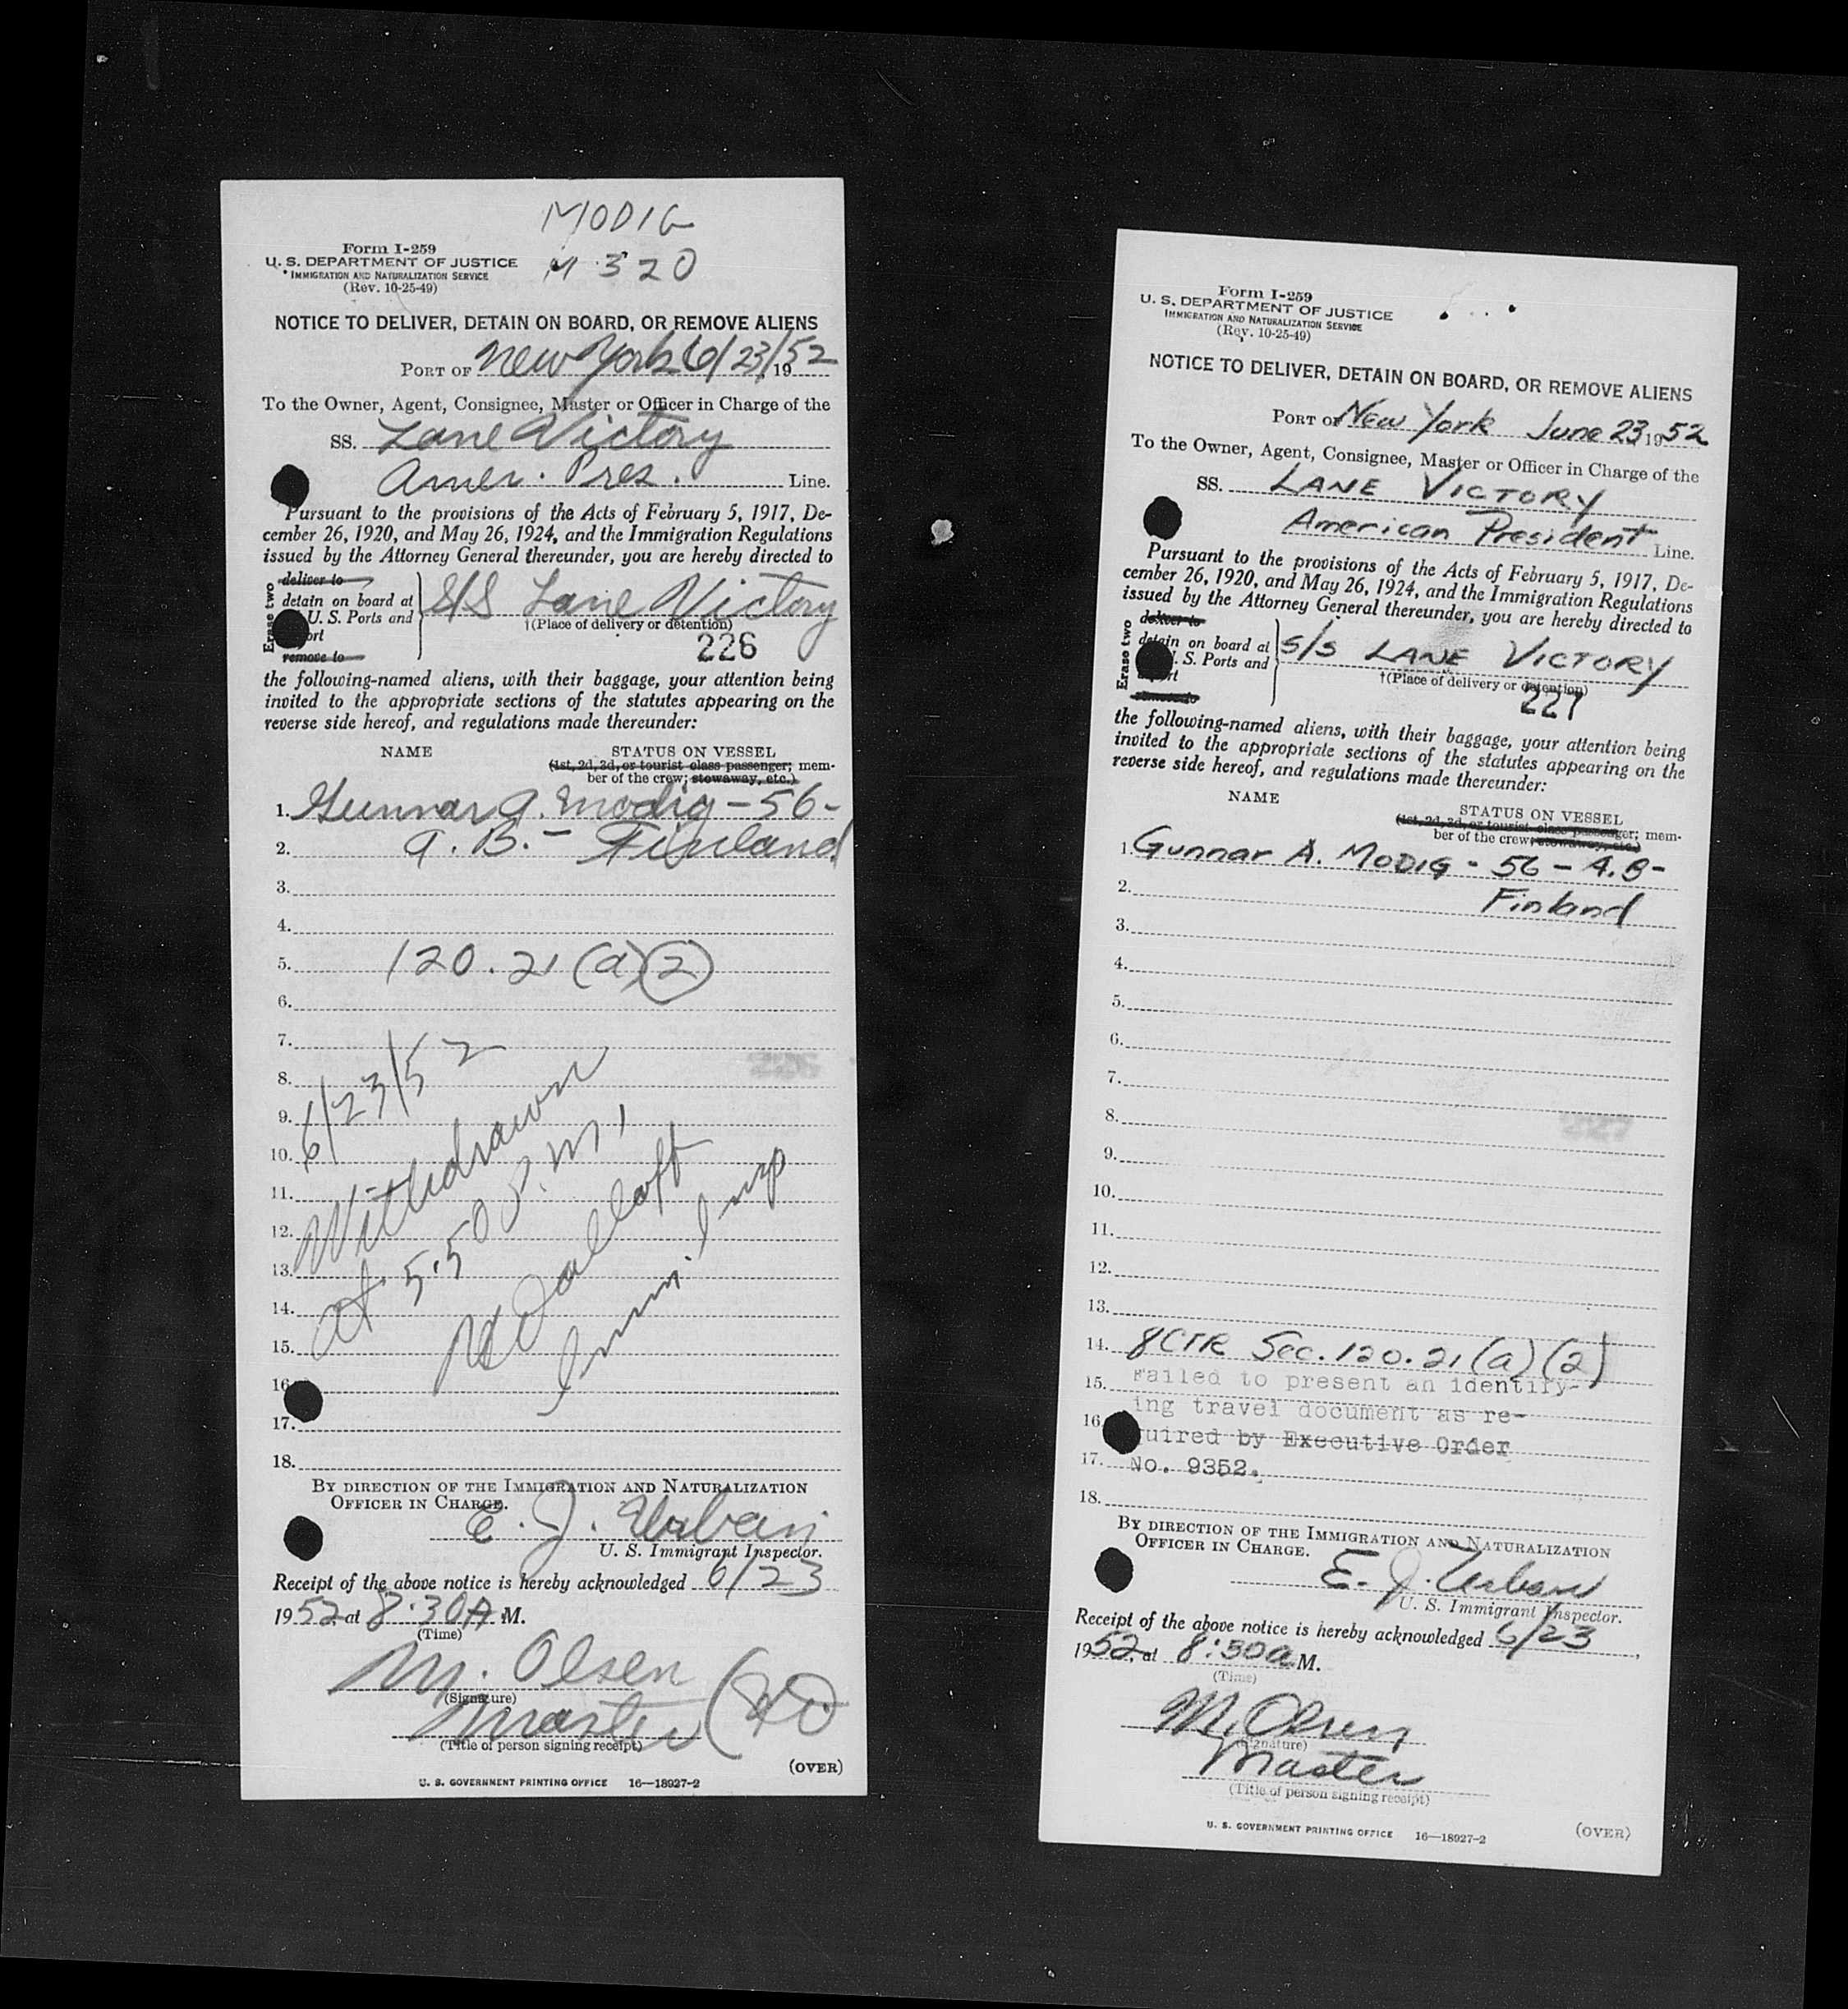 MODIG
M 320
Form I-259
U. S. DEPARTMENT OF JUSTICE
IMMIGRATION AND NATURALIZATION SERVICE
(Rev. 10-25-49)
NOTICE TO DELIVER, DETAIN ON BOARD, OR REMOVE ALIENS
PORT OF New York 6/23/, 1952
To the Owner, Agent, Consignee, Master or Officer in Charge of the
SS. Lane Victory
Amer. Pres. Line.
Pursuant to the provisions of the Acts of February 5, 1917, De-
cember 26, 1920, and May 26, 1924, and the Immigration Regulations
issued by the Attorney General thereunder, you are hereby directed to
Erase two
deliver to
detain on board at
U. S. Ports and
ort
remove to
S/S Lane Victory
†(Place of delivery or detention)
226
the following-named aliens, with their baggage, your attention being
invited to the appropriate sections of the statutes appearing on the
reverse side hereof, and regulations made thereunder:
NAME STATUS ON VESSEL
(1st, 2d, 3d, or tourist class passenger; mem-
ber of the crew; stowaway, etc.)
1. Gunnar A. Modig - 56 -
2. A. B. - Finland
3.
4.
5. 120.21 (a) (2)
6.
7.
8.
9.
10.
11.
12.
13.
14.
15.
16.
17.
18.
6/23/52
Withdrawn
at 5:50 P.M.
Imm. Insp
BY DIRECTION OF THE IMMIGRATION AND NATURALIZATION
OFFICER IN CHARGE.
E. J. Urban
U. S. Immigrant Inspector.
Receipt of the above notice is hereby acknowledged 6/23
1952 at 8:30 A. M.
(Time)
M. Olsen
(Signature)
Master
(Title of person signing receipt)
(OVER)
U. S. GOVERNMENT PRINTING OFFICE 16—18927-2
Form I-259
U. S. DEPARTMENT OF JUSTICE
IMMIGRATION AND NATURALIZATION SERVICE
(Rev. 10-25-49)
NOTICE TO DELIVER, DETAIN ON BOARD, OR REMOVE ALIENS
PORT OF New York June 23, 1952
To the Owner, Agent, Consignee, Master or Officer in Charge of the
SS. LANE VICTORY
American President Line.
Pursuant to the provisions of the Acts of February 5, 1917, De-
cember 26, 1920, and May 26, 1924, and the Immigration Regulations
issued by the Attorney General thereunder, you are hereby directed to
Erase two
deliver to
detain on board at
. S. Ports and
port
remove to
S/S LANE VICTORY
†(Place of delivery or detention)
227
the following-named aliens, with their baggage, your attention being
invited to the appropriate sections of the statutes appearing on the
reverse side hereof, and regulations made thereunder:
NAME STATUS ON VESSEL
(1st, 2d, 3d, or tourist class passenger; mem-
ber of the crew; stowaway, etc.)
1. Gunnar A. MODIG - 56 - A.B -
2. Finland
3.
4.
5.
6.
7.
8.
9.
10.
11.
12.
13.
14. 8CFR Sec. 120.21 (a) (2)
15. Failed to present an identify-
ing travel document as re-
16. quired by Executive Order
17. No. 9352.
18.
BY DIRECTION OF THE IMMIGRATION AND NATURALIZATION
OFFICER IN CHARGE.
E. J. Urban
U. S. Immigrant Inspector.
Receipt of the above notice is hereby acknowledged 6/23,
1952, at 8:30 a M.
(Time)
M. Olsen,
(Signature)
Master
(Title of person signing receipt)
U. S. GOVERNMENT PRINTING OFFICE 16—18927-2
(OVER)